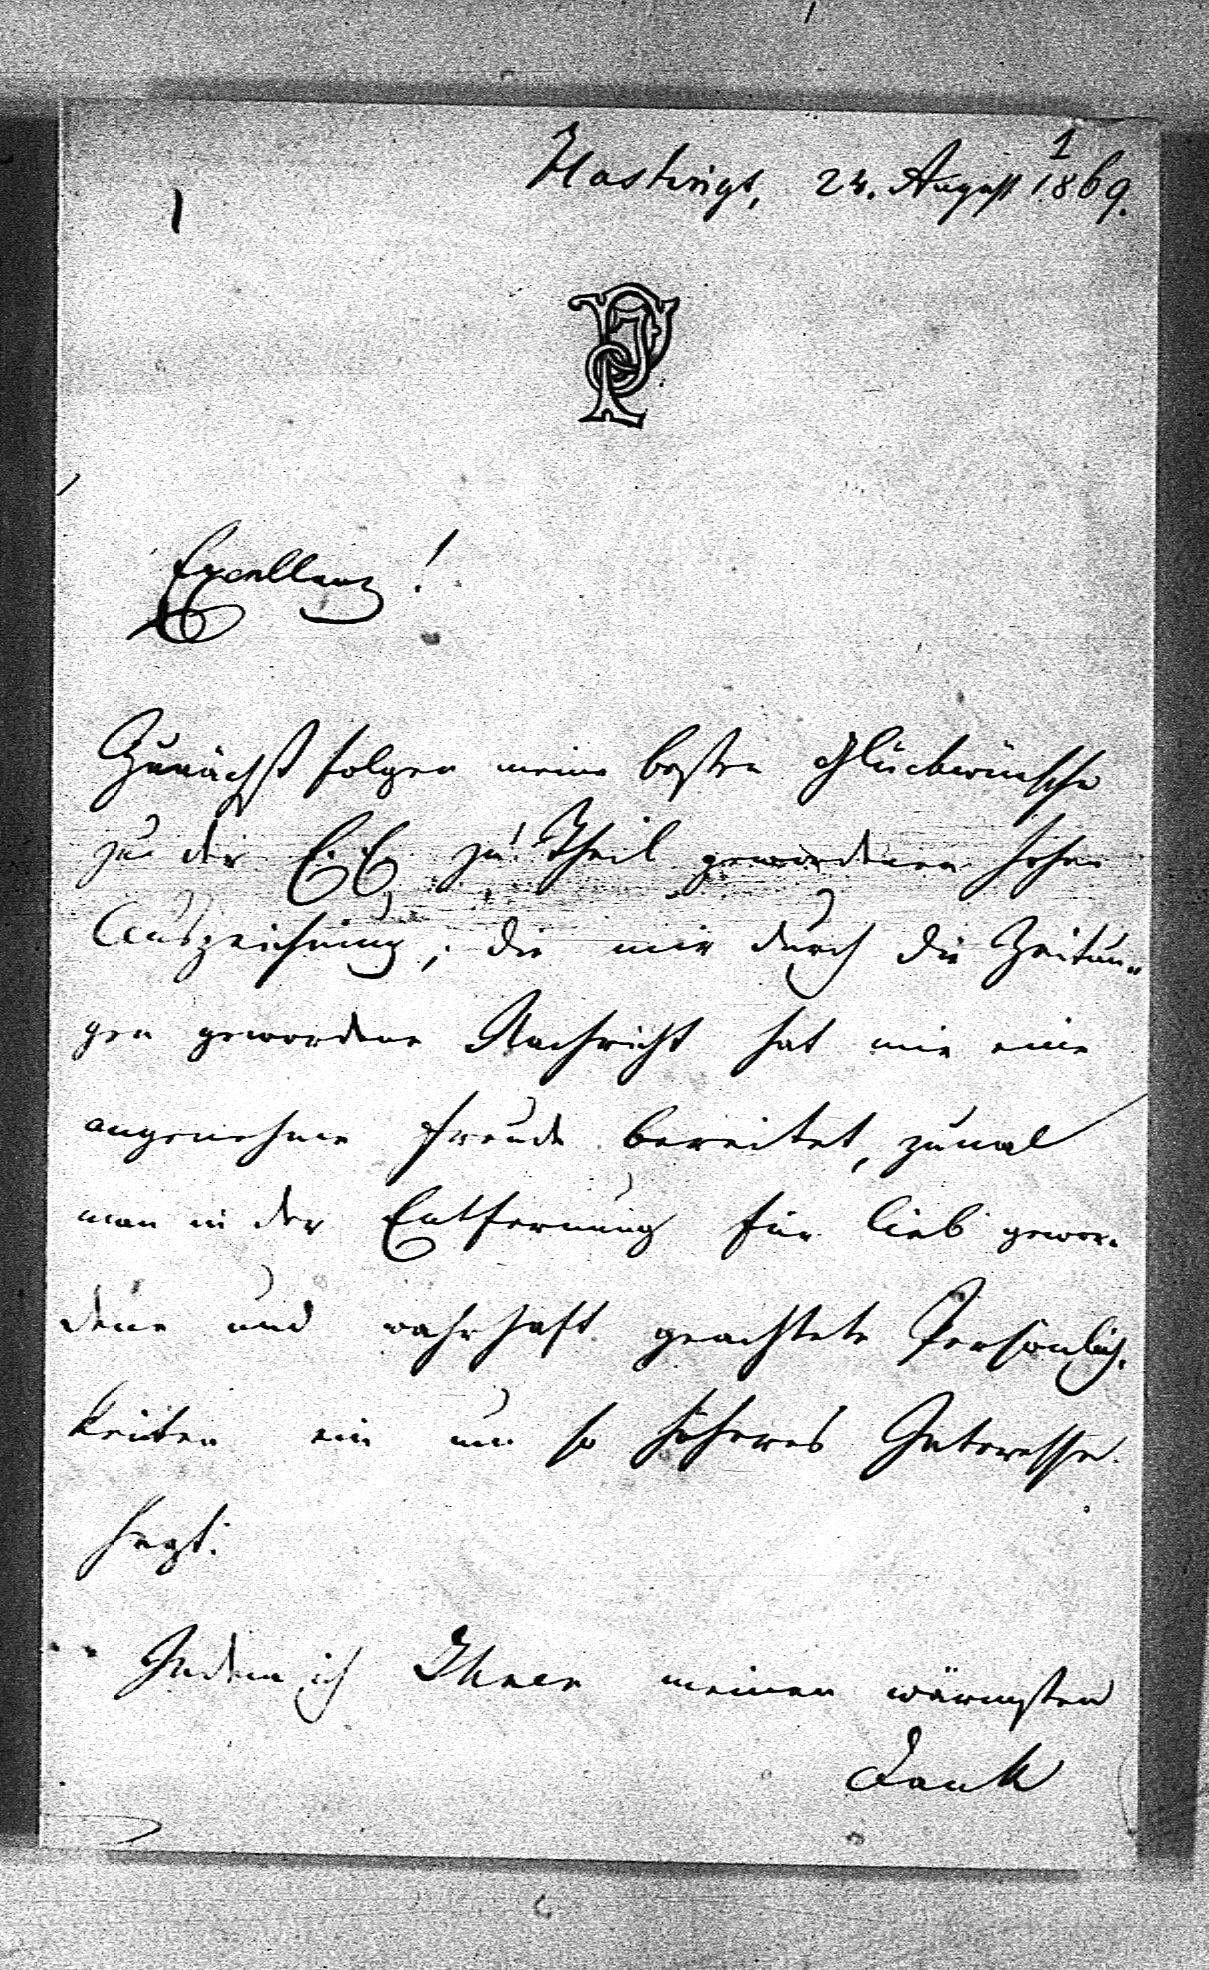 1
Hastings, 24. August 1869.
1
PJ
Excellenz!
Zunächst folgen meine besten Glückwünsche
zu der E. E. zu Theil gewordenen hohen
Auszeichnung; die mir durch die Zeitun„
gen gewordene Nachricht hat mir eine
angenehme Freude bereitet, zumal
man in der Entfernung für lieb gewor„
dene und wahrhaft geachtete Persönlich„
keiten ein um so höheres Interesse
hegt.
Indem ich Ihnen meinen wärmsten
Dank